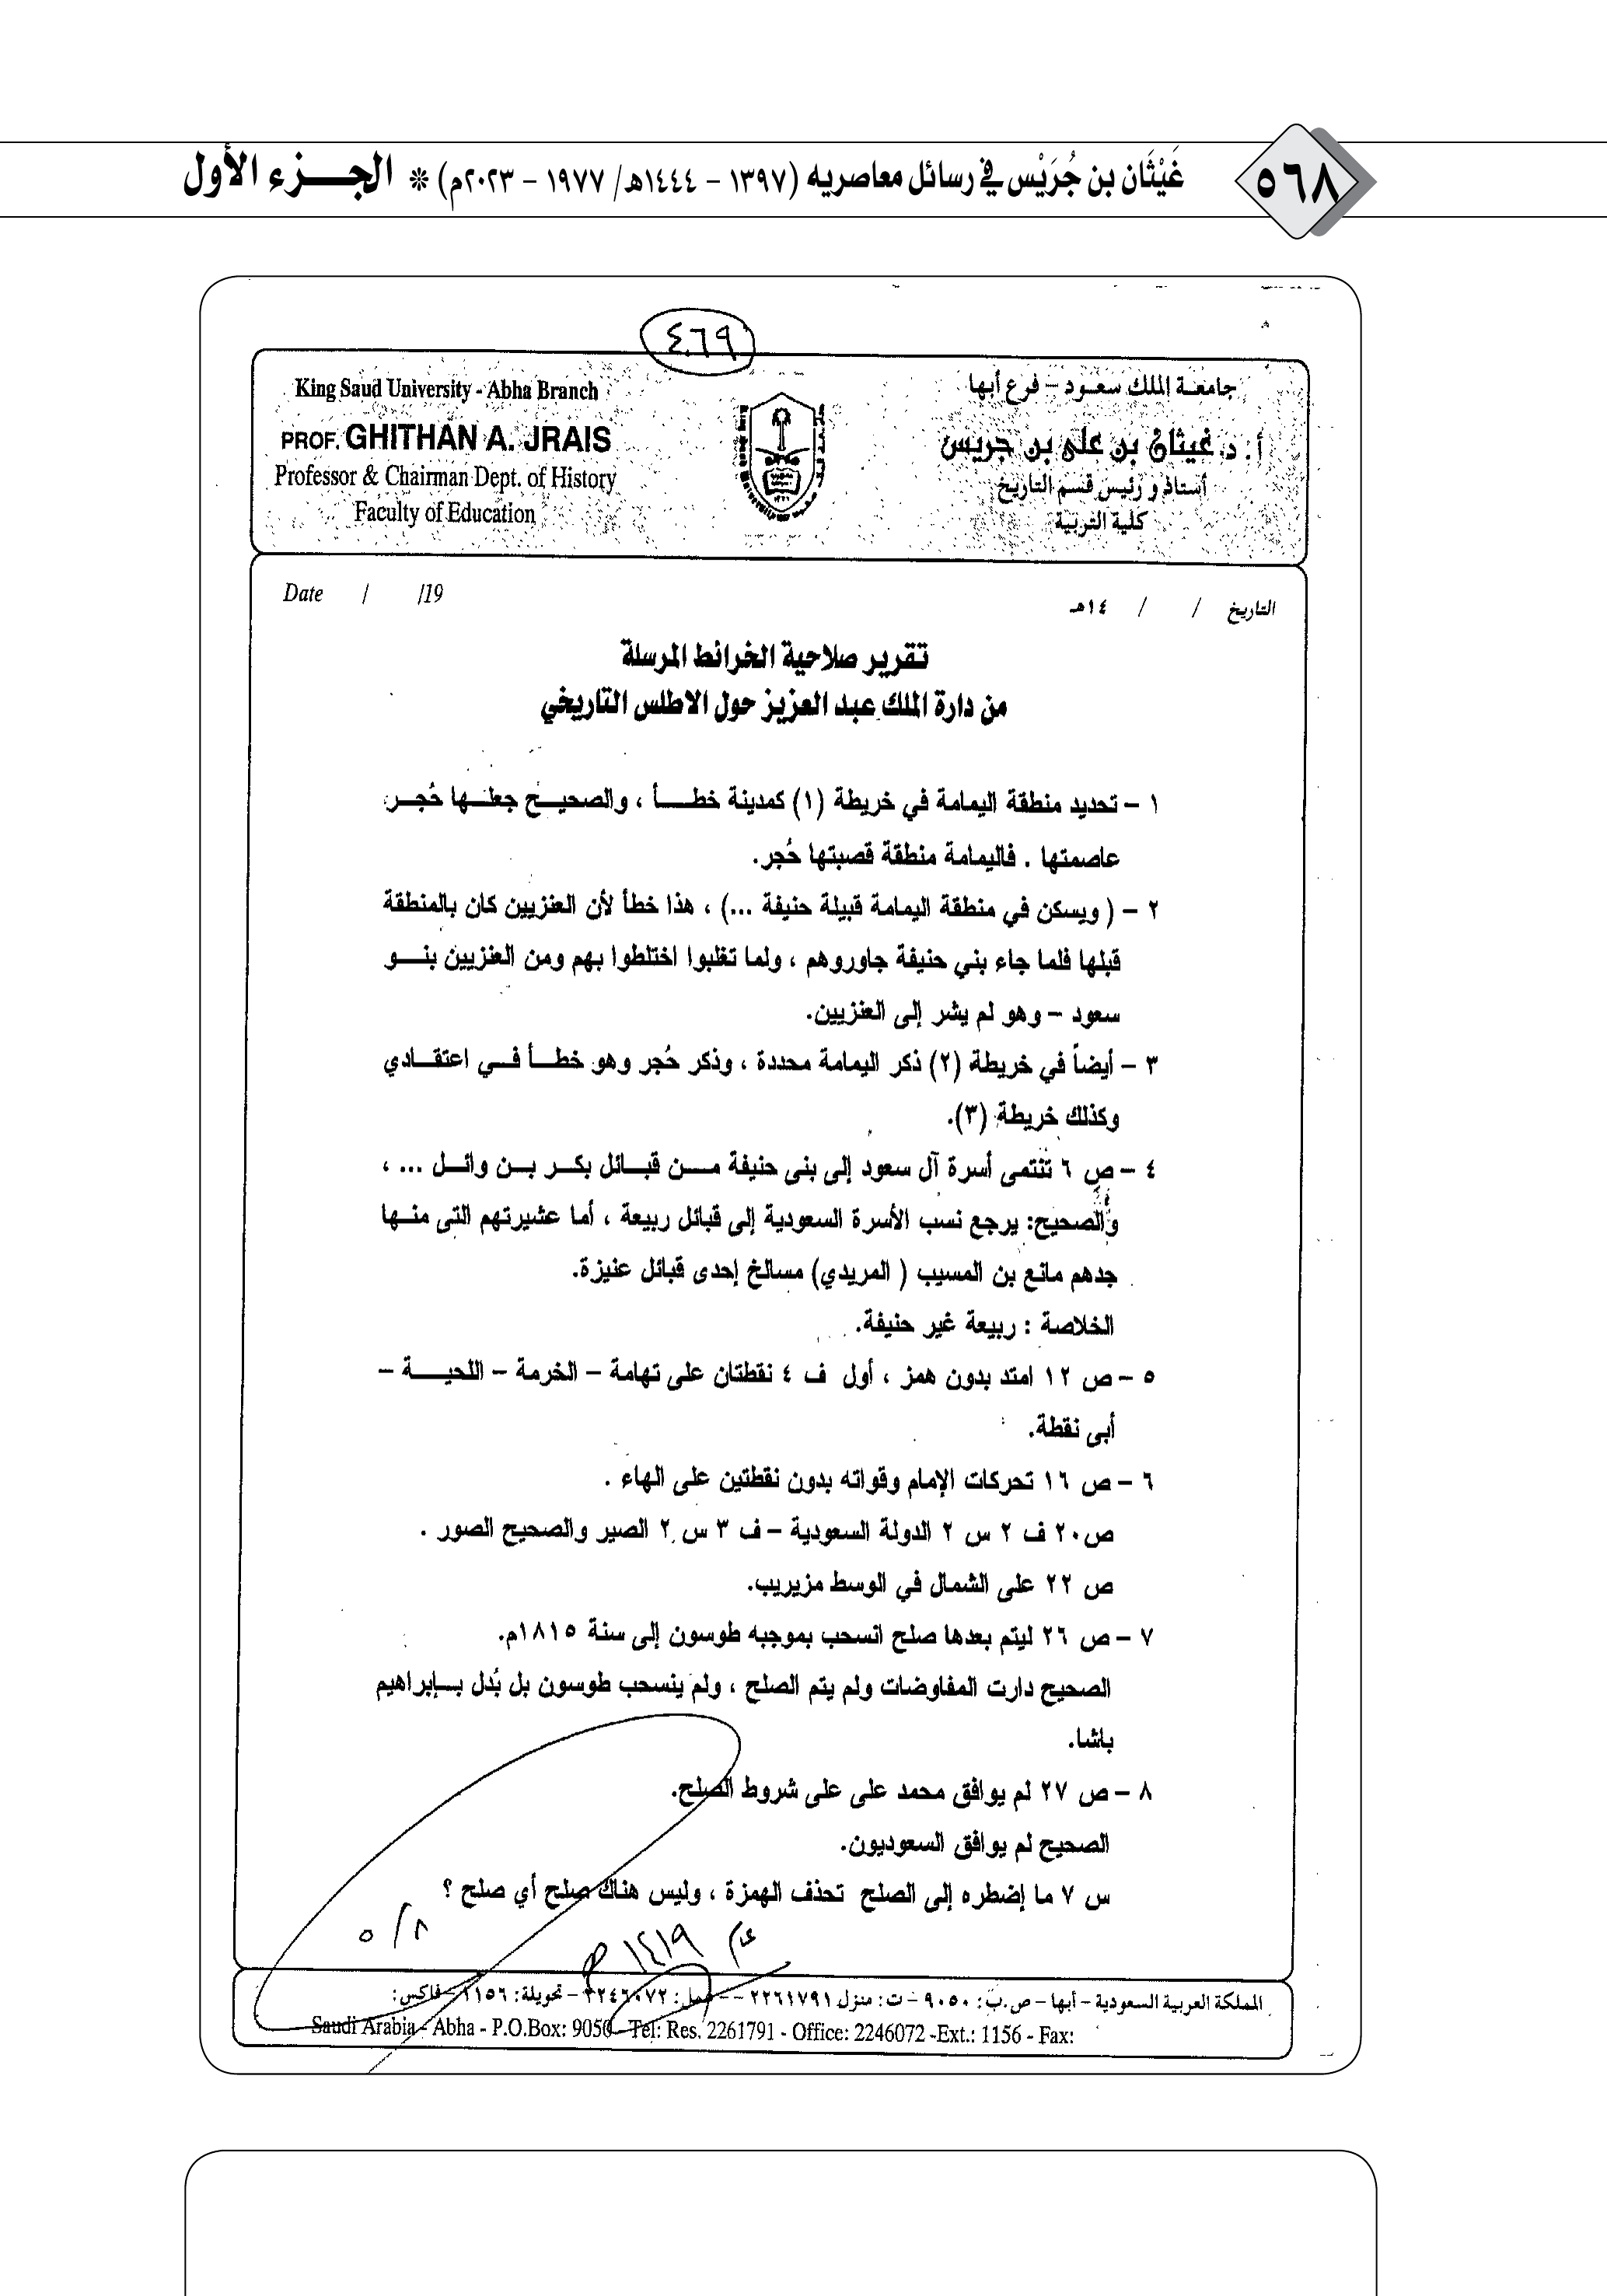 ٥٦٨
غَيْثَان بن جُرَيْس في رسائل معاصريه (١٣٩٧ – ١٤٤٤هـ/ ١٩٧٧ – ٢٠٢٣م) * الجـــزء الأول
٤٦٩
جامعـة الملك سعـود – فرع أبها
أ. د. غيثان بن على بن جريس
أستاذ و رئيس قسم التاريخ
كلية التربية
King Saud University - Abha Branch
PROF. GHITHAN A. JRAIS
Professor & Chairman Dept. of History
Faculty of Education
التاريخ / / ١٤هـ
Date / /19
تقرير صلاحية الخرائط المرسلة
من دارة الملك عبد العزيز حول الاطلس التاريخي
١ – تحديد منطقة اليمامة في خريطة (١) كمدينة خطــأ ، والصحيـح جعلـها حُجـر
عاصمتها . فاليمامة منطقة قصبتها حُجر.
٢ – ( ويسكن في منطقة اليمامة قبيلة حنيفة ...) ، هذا خطأ لأن العنزيين كان بالمنطقة
قبلها فلما جاء بني حنيفة جاوروهم ، ولما تغلبوا اختلطوا بهم ومن العنزيين بنـو
سعود – وهو لم يشر إلى العنزيين.
٣ – أيضاً في خريطة (٢) ذكر اليمامة محددة ، وذكر حُجر وهو خطـأ فـي اعتقـادي
وكذلك خريطة (٣).
٤ – ص ٦ تنتمى أسرة آل سعود إلى بنى حنيفة مـن قبـائل بكـر بـن وائـل ... ،
والصحيح: يرجع نسب الأسرة السعودية إلى قبائل ربيعة ، أما عشيرتهم التى منـها
جدهم مانع بن المسيب ( المريدي) مسالخ إحدى قبائل عنيزة.
الخلاصة : ربيعة غير حنيفة.
٥ – ص ١٢ امتد بدون همز ، أول ف ٤ نقطتان على تهامة – الخرمة – اللحيـة –
أبى نقطة.
٦ – ص ١٦ تحركات الإمام وقواته بدون نقطتين على الهاء .
ص٢٠ ف ٢ س ٢ الدولة السعودية – ف ٣ س ٢ الصير والصحيح الصور .
ص ٢٢ على الشمال في الوسط مزيريب.
٧ – ص ٢٦ ليتم بعدها صلح انسحب بموجبه طوسون إلى سنة ١٨١٥م.
الصحيح دارت المفاوضات ولم يتم الصلح ، ولم ينسحب طوسون بل بُدل بـإبراهيم
باشا.
٨ – ص ٢٧ لم يوافق محمد على على شروط الصلح.
الصحيح لم يوافق السعوديون.
س ٧ ما إضطره إلى الصلح تحذف الهمزة ، وليس هناك صلح أي صلح ؟
٥/٨ ١٤١٩
المملكة العربية السعودية – أبها – ص.ب: ٩٠٥٠ – ت: منزل ٢٢٦١٧٩١ – عمل: ٢٢٤٦٠٧٢ – تحويلة: ١١٥٦ – فاكس:
Saudi Arabia - Abha - P.O.Box: 9050 - Tel: Res. 2261791 - Office: 2246072 -Ext.: 1156 - Fax: